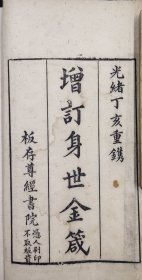 光緒丁亥重鐫
增訂身世金箴
板存尊經書院
憑人刷印
不取板貲